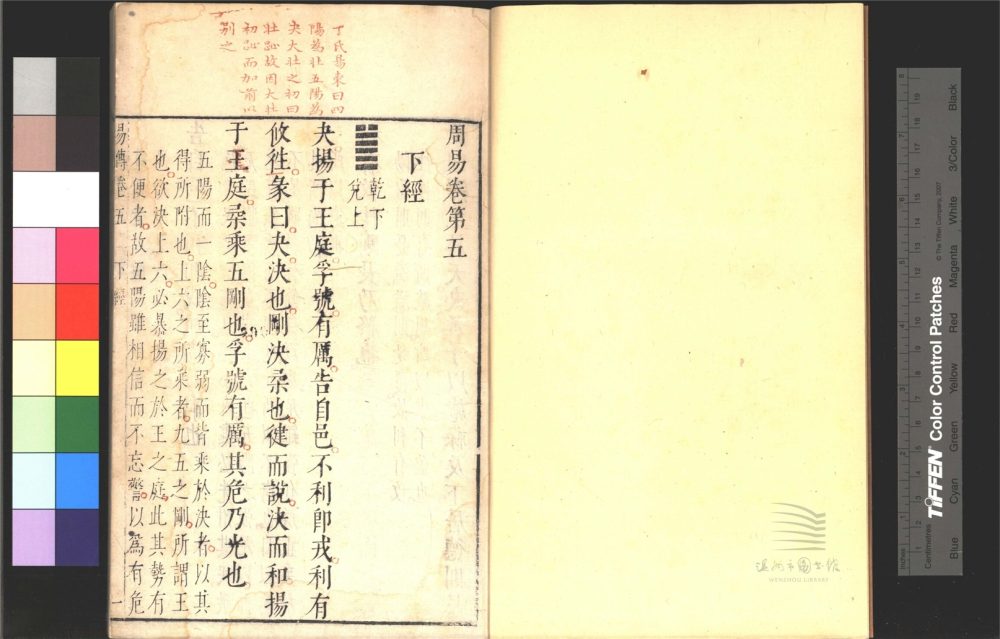 丁氏易東曰四
陽為壯五陽為
夬大壯之初曰
壯趾故因大壯
初趾而加前以
别之
周易卷第五
下經
乾下
兌上
夬揚于王庭孚號有厲告自邑不利卽戎利有
攸徃彖曰夬決也剛決柔也健而說決而和揚
于王庭柔乘五剛也孚號有厲其危乃光也
五陽而一陰陰至寡弱而皆乘於決者以其
得所附也上六之所乘者九五之剛所謂王
也欲決上六必暴揚之於王之庭此其勢有
不便者故五陽雖相信而不忘警以為有危
易傳卷五 下經 一
溫州市圖書館
WENZHOU LIBRARY
TIFFEN Color Control Patches
© The Tiffen Company, 2007
Blue
Cyan
Green
Yellow
Red
Magenta
White
3/Color
Black
Inches
Centimetres